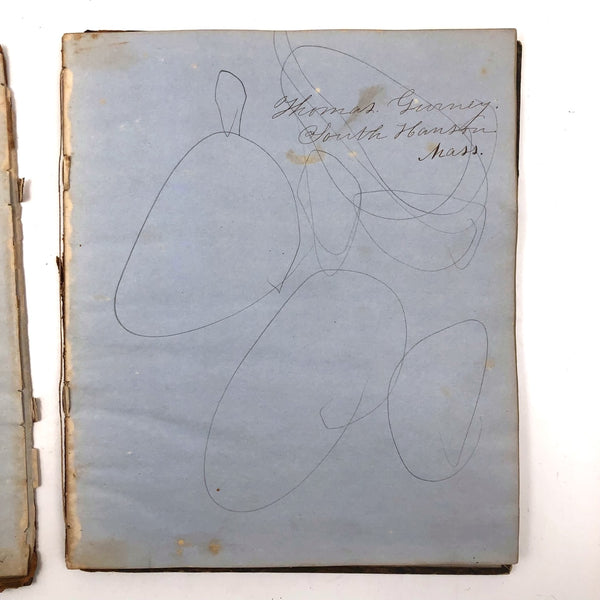 Thomas Gurney.
South Hanson
Mass.